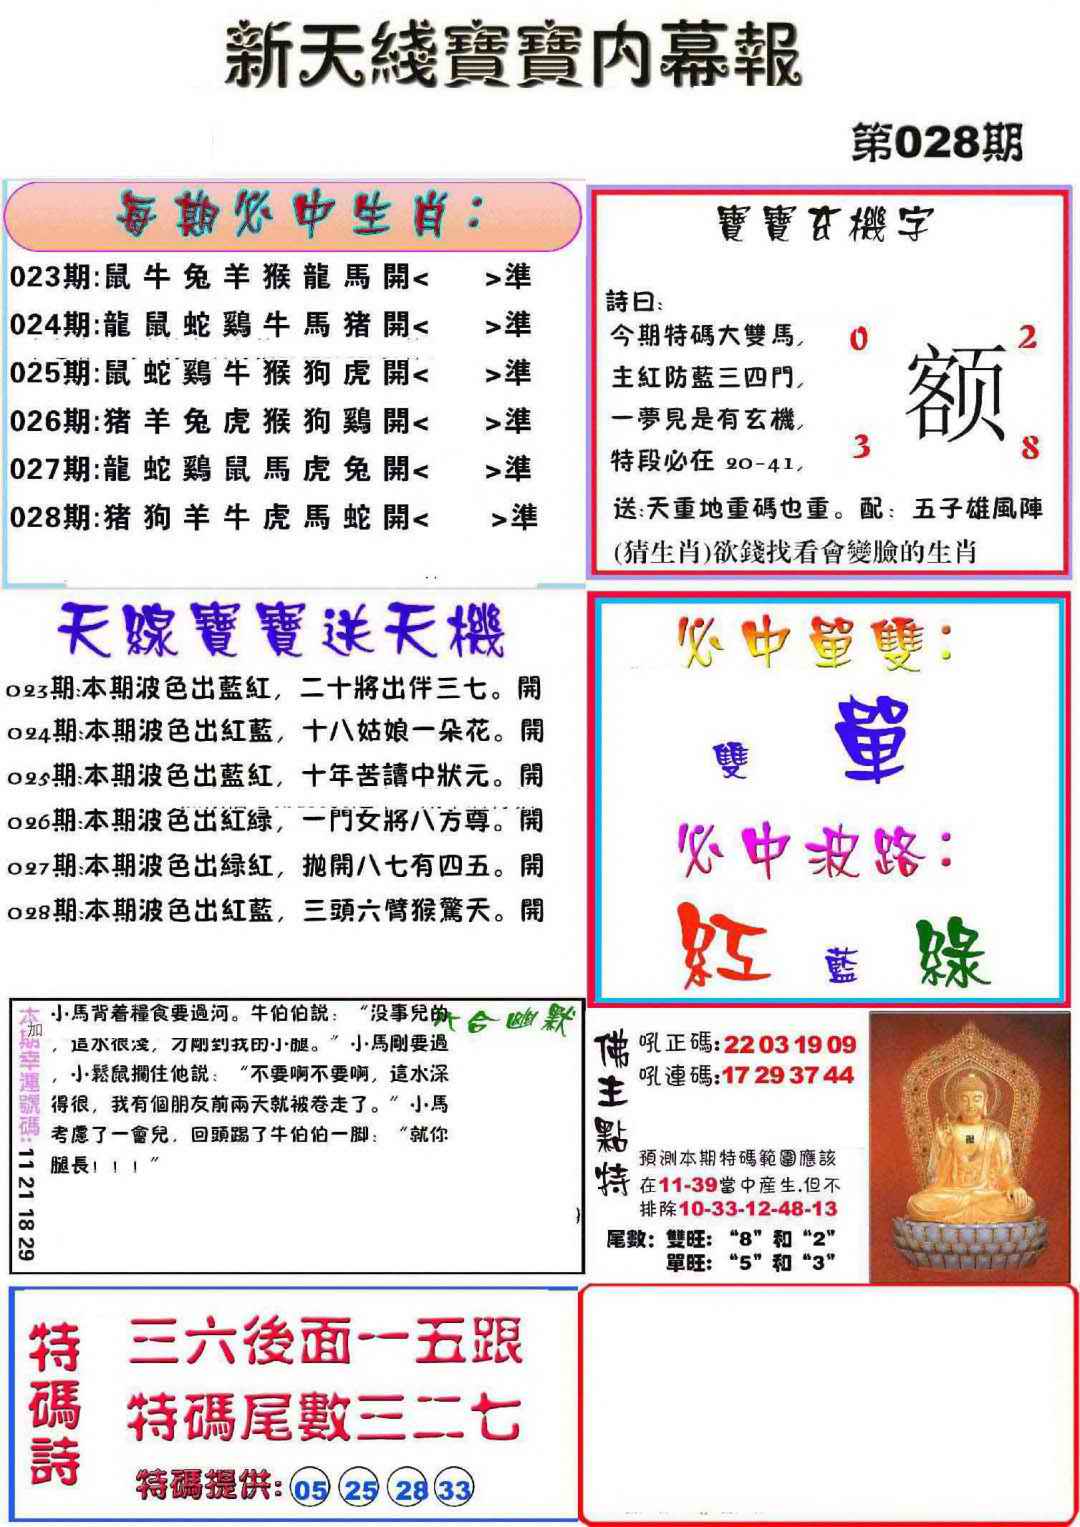 新天綫寶寶内幕報
第028期
每期必中生肖：
023期:鼠牛兔羊猴龍馬開< >準
024期:龍鼠蛇鷄牛馬猪開< >準
025期:鼠蛇鷄牛猴狗虎開< >準
026期:猪羊兔虎猴狗鷄開< >準
027期:龍蛇鷄鼠馬虎兔開< >準
028期:猪狗羊牛虎馬蛇開< >準
寶寶玄機字
詩曰:
今期特碼大雙馬,
主紅防藍三四門,
一夢見是有玄機,
特段必在 20-41,
0 2
额
3 8
送:天重地重碼也重。配：五子雄風陣
(猜生肖)欲錢找看會變臉的生肖
天線寶寶送天機
023期:本期波色出藍紅，二十將出伴三七。開
024期:本期波色出紅藍，十八姑娘一朵花。開
025期:本期波色出藍紅，十年苦讀中狀元。開
026期:本期波色出紅緑，一門女將八方尊。開
027期:本期波色出緑紅，拋開八七有四五。開
028期:本期波色出紅藍，三頭六臂猴驚天。開
必中單雙：
雙 單
必中波路：
紅 藍 綠
本期幸運號碼:11 21 18 29
加
六合幽默
小馬背着糧食要過河。牛伯伯説：“没事兒的
，這水很淺，才剛到我的小腿。”小馬剛要過
，小鬆鼠攔住他説：“不要啊不要啊，這水深
得很，我有個朋友前兩天就被卷走了。”小馬
考慮了一會兒，回頭踢了牛伯伯一脚：“就你
腿長！！！”
佛主點特
吼正碼:22 03 19 09
吼連碼:17 29 37 44
預測本期特碼範圍應該
在11-39當中産生.但不
排除10-33-12-48-13
尾數：雙旺：“8”和“2”
單旺：“5”和“3”
特碼詩
三六後面一五跟
特碼尾數三二七
特碼提供: 05 25 28 33